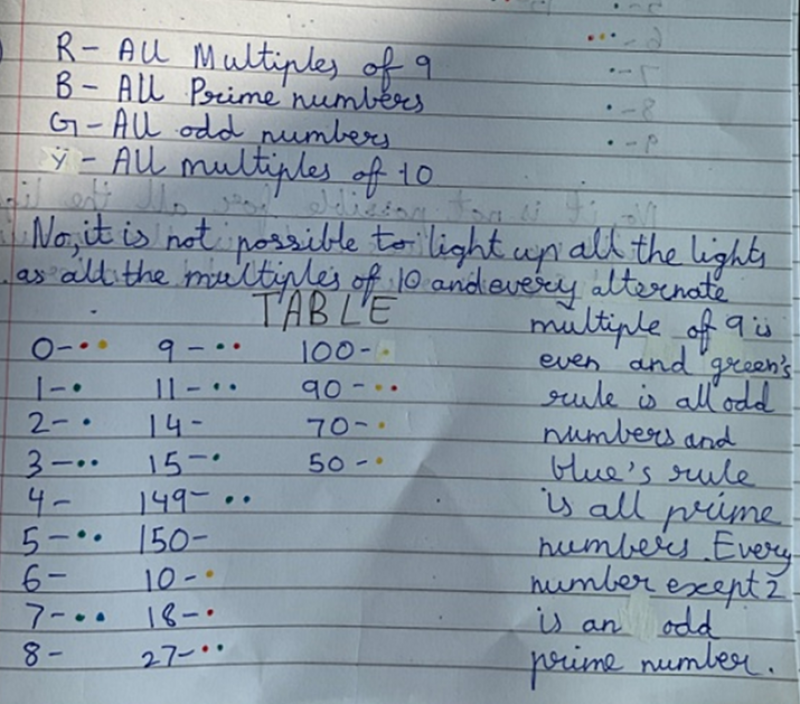 R - All Multiples of 9
B - All Prime numbers
G - All odd numbers
Y - All multiples of 10
No, it is not possible to light up all the lights
as all the multiples of 10 and every alternate
TABLE
multiple of 9 is
even and green's
rule is all odd
numbers and
blue's rule
is all prime
numbers. Every
number except 2
is an odd
prime number.
0-•• 9-•• 100-•
1-• 11-•• 90-••
2-• 14- 70-•
3-•• 15-• 50-•
4- 149-••
5-•• 150-
6- 10-•
7-•• 18-•
8- 27-••